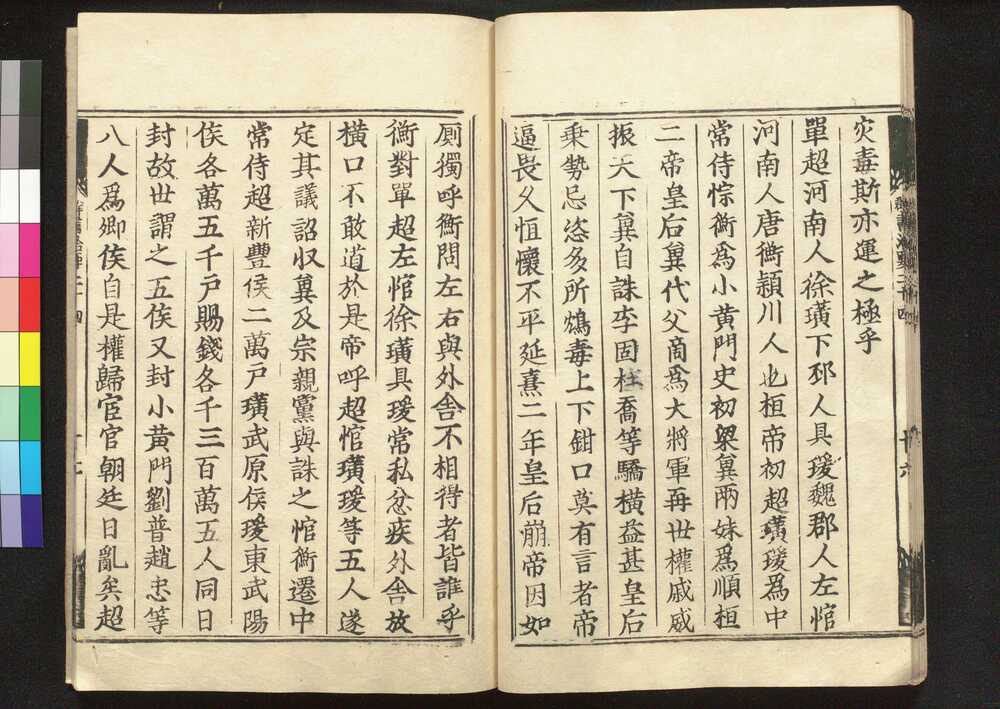 灾毒斯亦運之極乎
單超河南人徐璜下邳人具瑗魏郡人左悺
河南人唐衡潁川人也桓帝初超璜瑗爲中
常侍悺衡爲小黄門史初梁冀兩妹爲順桓
二帝皇后冀代父商爲大將軍再世權戚威
振天下冀自誅李固杜喬等驕横益甚皇后
乗勢忌恣多所鴆毒上下鉗口莫有言者帝
逼畏乆恒懷不平延熹二年皇后崩帝因如
厠獨呼衡問左右與外舍不相得者皆誰乎
衡對單超左悺徐璜具瑗常私忿疾外舍放
横口不敢道於是帝呼超悺璜瑗等五人遂
定其議詔収冀及宗親黨與誅之悺衡遷中
常侍超新豐侯二萬戸璜武原侯瑗東武陽
侯各萬五千戸賜錢各千三百萬五人同日
封故世謂之五侯又封小黄門劉普趙忠等
八人爲郷侯自是權歸宦官朝廷日亂矣超